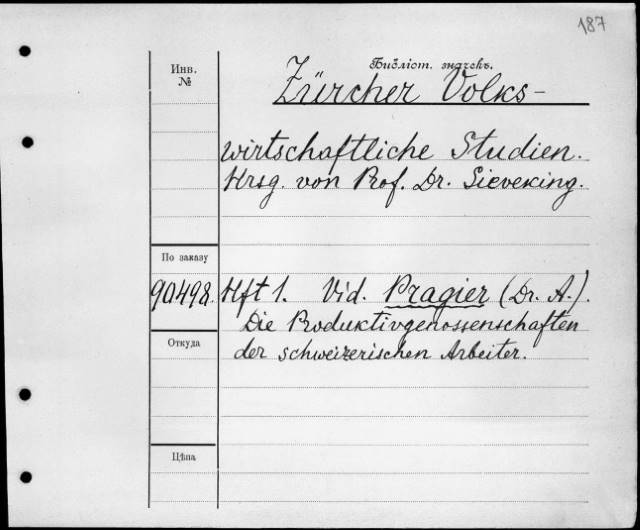 187
Инв.
№
Библіот. значекъ.
Zürcher Volks-
wirtschaftliche Studien.
Hrsg. von Prof. Dr. Sieveking.
По заказу
90498. Hft 1. Vid. Pragier (Dr. A.).
Die Produktivgenossenschaften
Откуда
der schweizerischen Arbeiter.
Цѣна